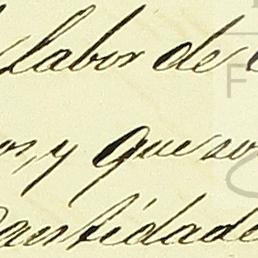 labor de
os, y que so
Cantidade